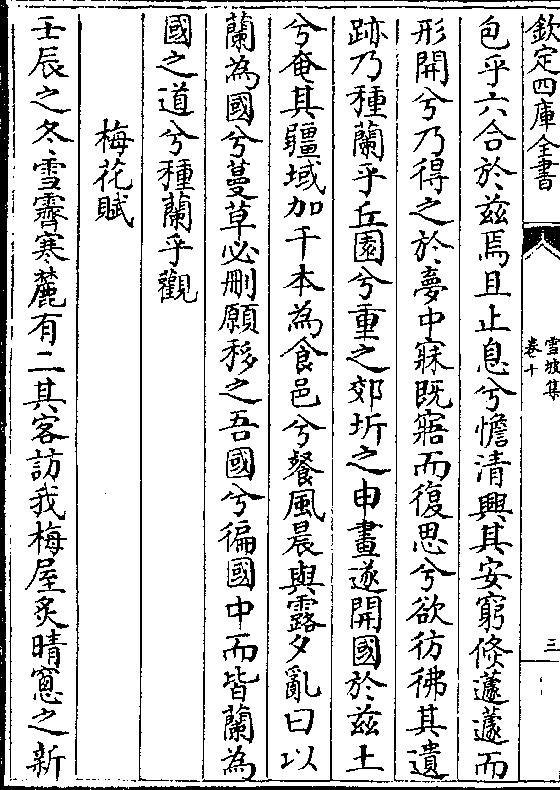 欽定四庫全書
雪坡集
卷十
三
包乎六合於兹焉且止息兮憺清興其安窮倐蘧蘧而
形開兮乃得之於夢中寐既寤而復思兮欲彷彿其遺
跡乃種蘭乎丘園兮重之郊圻之申畫遂開國於兹土
兮奄其疆域加千本為食邑兮餐風晨與露夕亂曰以
蘭為國兮蔓草必刪願移之吾國兮徧國中而皆蘭為
國之道兮種蘭乎觀
梅花賦
壬辰之冬雪霽寒麓有二其客訪我梅屋炙晴窻之新